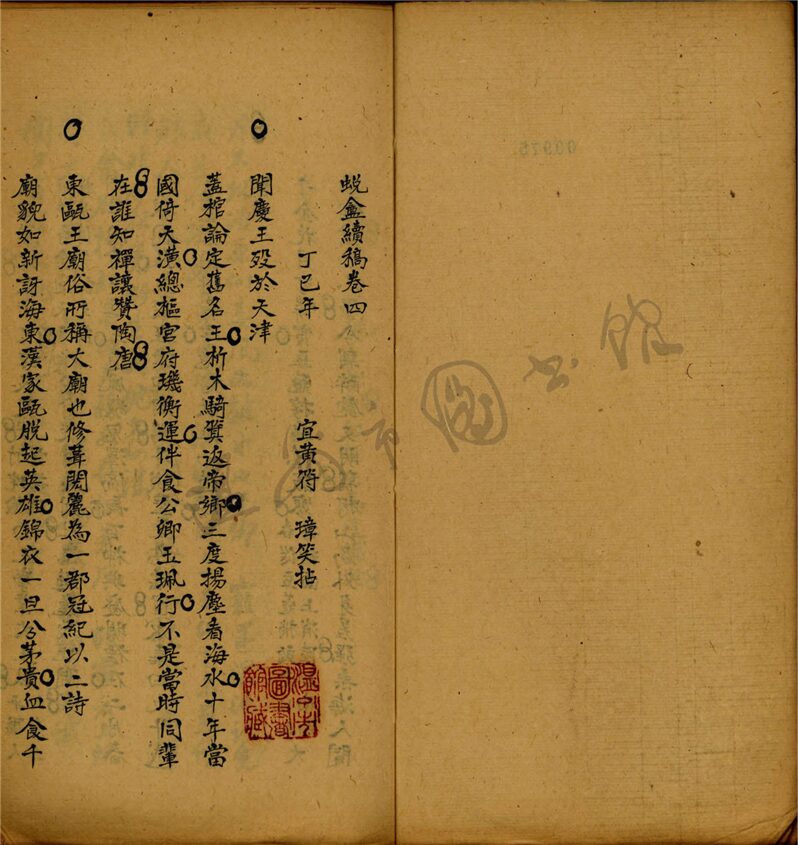 蛻盦續稿卷四
丁巳年 宜黃符 璋笑拈
聞慶王殁於天津
蓋棺論定舊名王析木騎箕返帝鄉三度揚塵看海水十年當
國倚天潢總樞宮府璣衡運伴食公卿玉珮行不是當時同輩
在誰知禪讓贊陶唐
東甌王廟俗所稱大廟也修葺閎麗為一郡冠紀以二詩
廟貌如新訝海東漢家甌脫起英雄錦衣一旦分茅貴血食千
溫州市
圖書
館藏
圖書館
00975